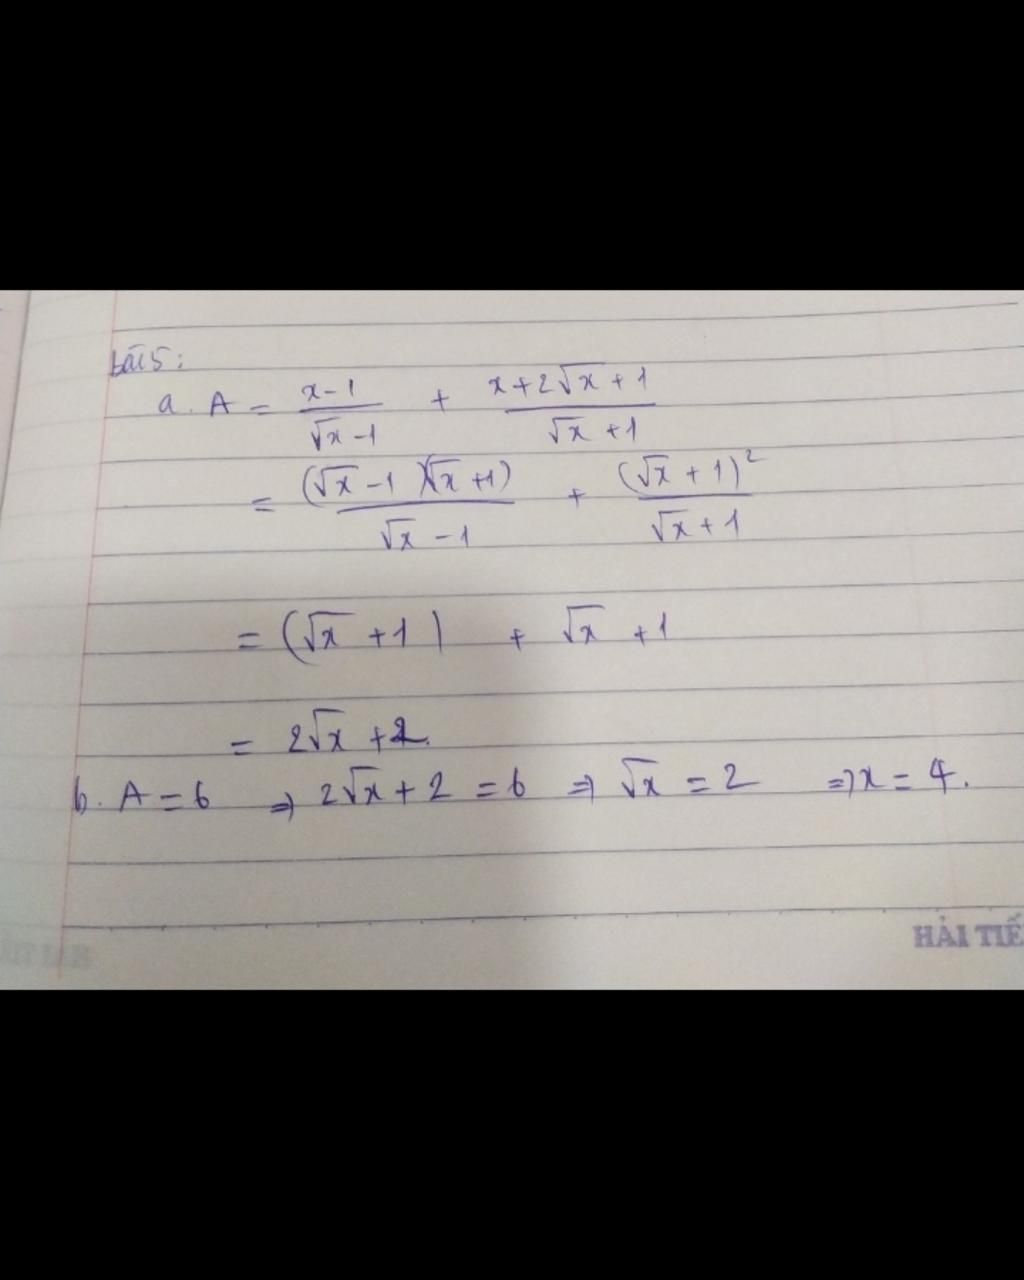 bài 5:
a. A = \frac{x-1}{\sqrt{x}-1} + \frac{x+2\sqrt{x}+1}{\sqrt{x}+1}
= \frac{(\sqrt{x}-1)(\sqrt{x}+1)}{\sqrt{x}-1} + \frac{(\sqrt{x}+1)^2}{\sqrt{x}+1}
= (\sqrt{x}+1) + \sqrt{x}+1
= 2\sqrt{x}+2.
b. A = 6 ⇒ 2\sqrt{x}+2 = 6 ⇒ \sqrt{x} = 2 ⇒ x = 4.
HẢI TIẾ